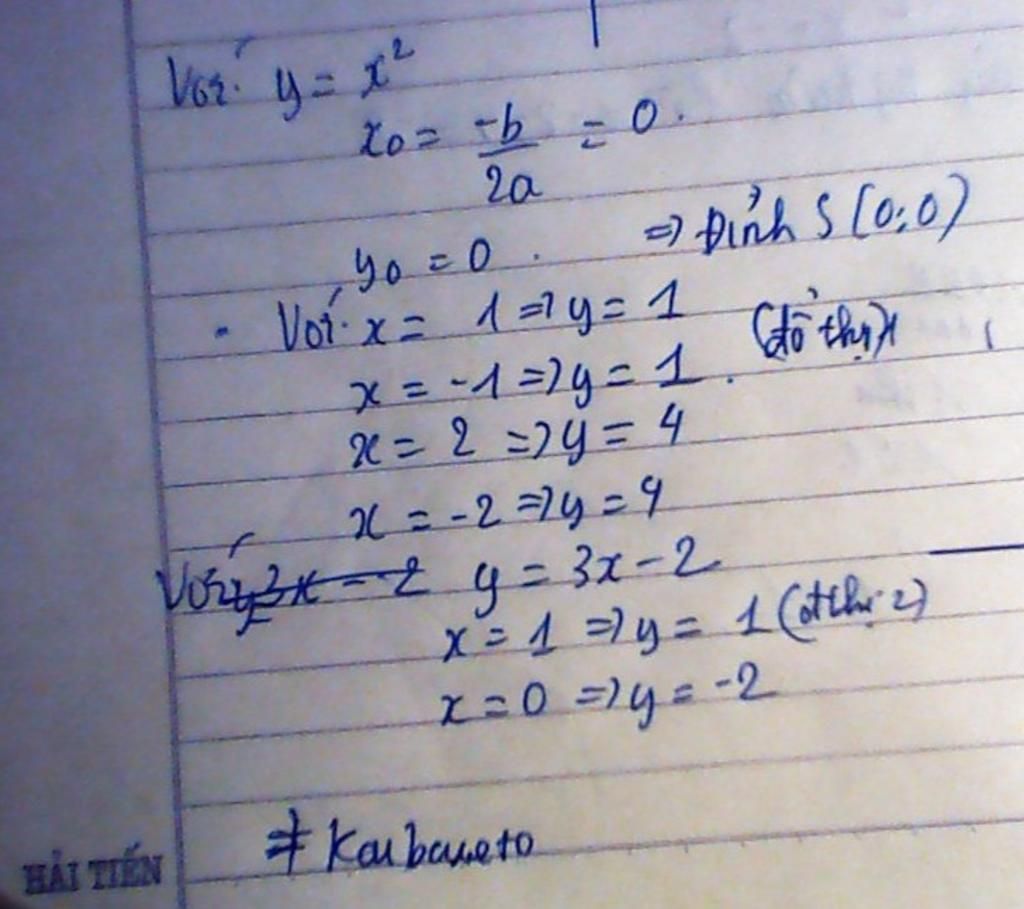 Với y = x²
x₀ = -b/2a = 0.
y₀ = 0. => Đỉnh S (0;0)
- Với x = 1 => y = 1
(đồ thị 1)
x = -1 => y = 1.
x = 2 => y = 4
x = -2 => y = 4
Với y = 3x - 2
x = 1 => y = 1 (đthị 2)
x = 0 => y = -2
HẢI TIẾN